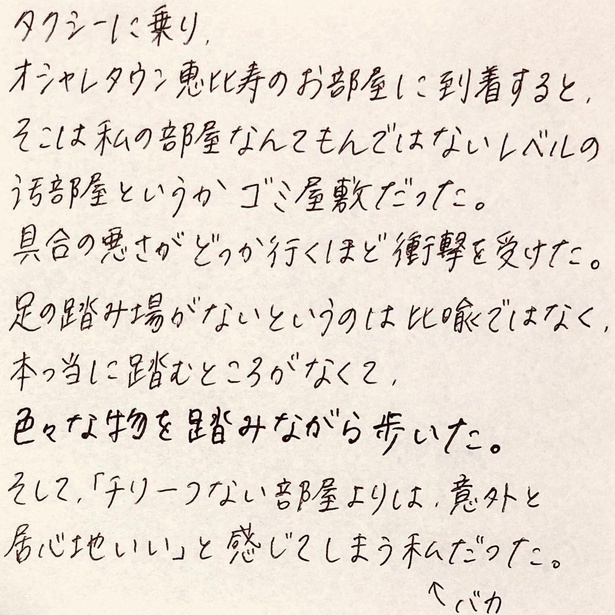 タクシーに乗り、
オシャレタウン恵比寿のお部屋に到着すると、
そこは私の部屋なんてもんではないレベルの
汚部屋というか ゴミ屋敷だった。
具合の悪さがどっか行くほど衝撃を受けた。
足の踏み場がないというのは比喩ではなく、
本っ当に踏むところがなくて、
色々な物を踏みながら歩いた。
そして、「チリ一つない部屋よりは、意外と
居心地いい」と感じてしまう私だった。
↑バカ